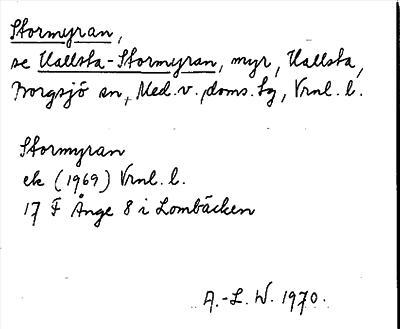 Stormyran,
se Hallsta-Stormyran, myr, Hallsta,
Borgsjö sn, Med.v. doms.sg, Vrnl. l.
Stormyran
ek (1969) Vrnl. l.
17 F Ånge 8 i Lombäcken
A.-L. W. 1970.